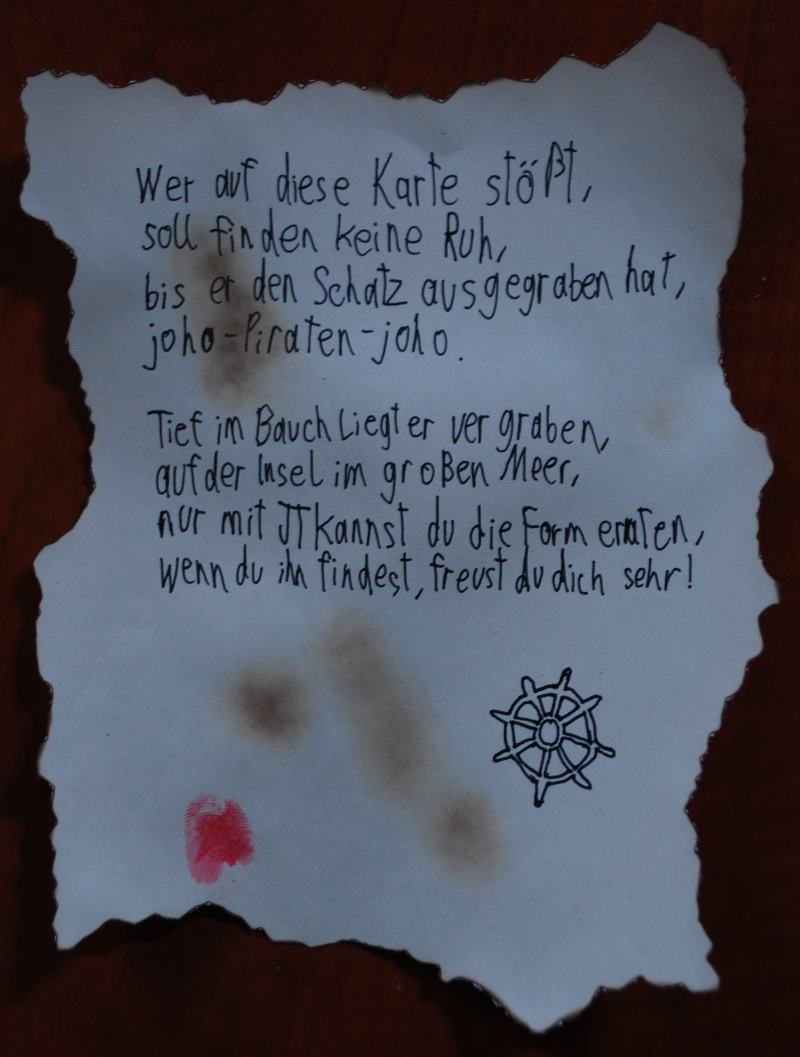 Wer auf diese Karte stößt,
soll finden keine Ruh,
bis er den Schatz ausgegraben hat,
joho-Piraten-joho.
Tief im Bauch Liegt er vergraben,
auf der Insel im großen Meer,
nur mit π kannst du die Form erraten,
wenn du ihn findest, freust du dich sehr!